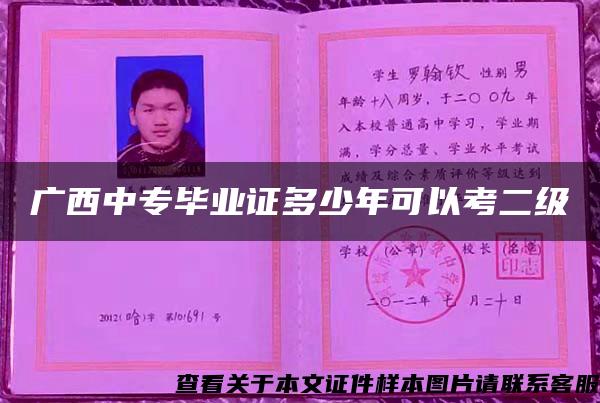 学生 罗翰钦 性别 男
年龄十八周岁，于二〇〇九年
入本校普通高中学习，学业期
满，学分总量、学业水平考试
成绩及综合素质评价等级达到
广西中专毕业证多少年可以考二级
学校（公章） 校长（名章）
2012（哈）字 第101691号
二〇一二年 七月二十日
查看关于本文证件样本图片请联系客服